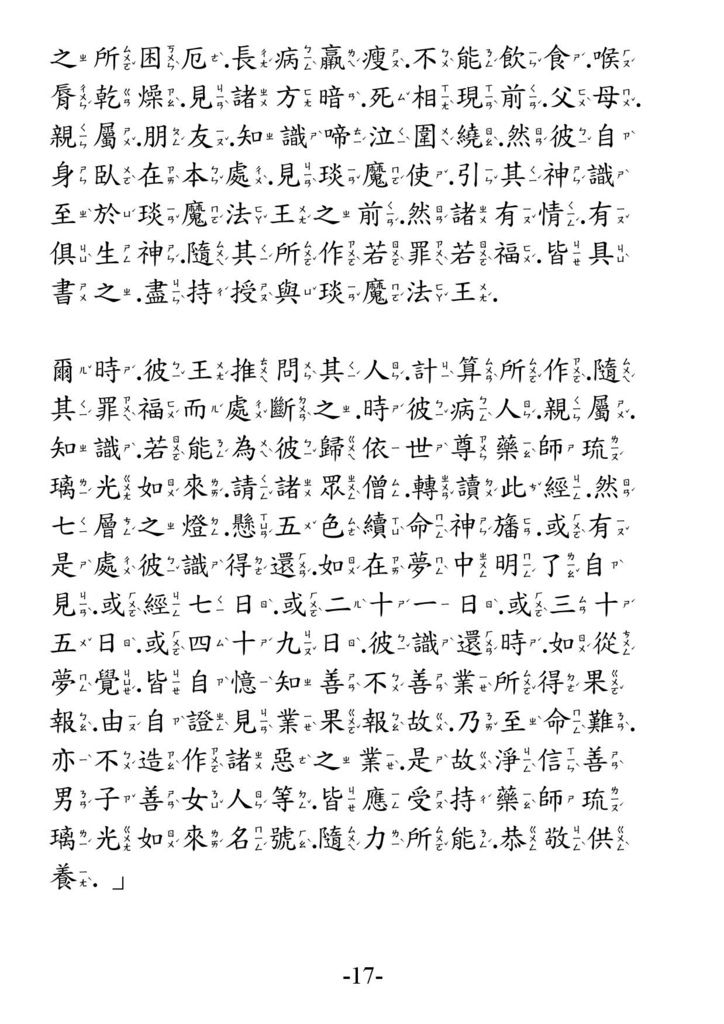 之所困厄.長病羸瘦.不能飲食.喉
脣乾燥.見諸方暗.死相現前.父母.
親屬.朋友.知識啼泣圍繞.然彼自
身臥在本處.見琰魔使.引其神識
至於琰魔法王之前.然諸有情.有
俱生神.隨其所作若罪若福.皆具
書之.盡持授與琰魔法王.
爾時.彼王推問其人.計算所作.隨
其罪福而處斷之.時彼病人.親屬.
知識.若能為彼歸依世尊藥師琉
璃光如來.請諸眾僧.轉讀此經.然
七層之燈.懸五色續命神旛.或有
是處彼識得還.如在夢中明了自
見.或經七日.或二十一日.或三十
五日.或四十九日.彼識還時.如從
夢覺.皆自憶知善不善業所得果
報.由自證見業果報故.乃至命難.
亦不造作諸惡之業.是故淨信善
男子善女人等.皆應受持藥師琉
璃光如來名號.隨力所能.恭敬供
養.」
-17-